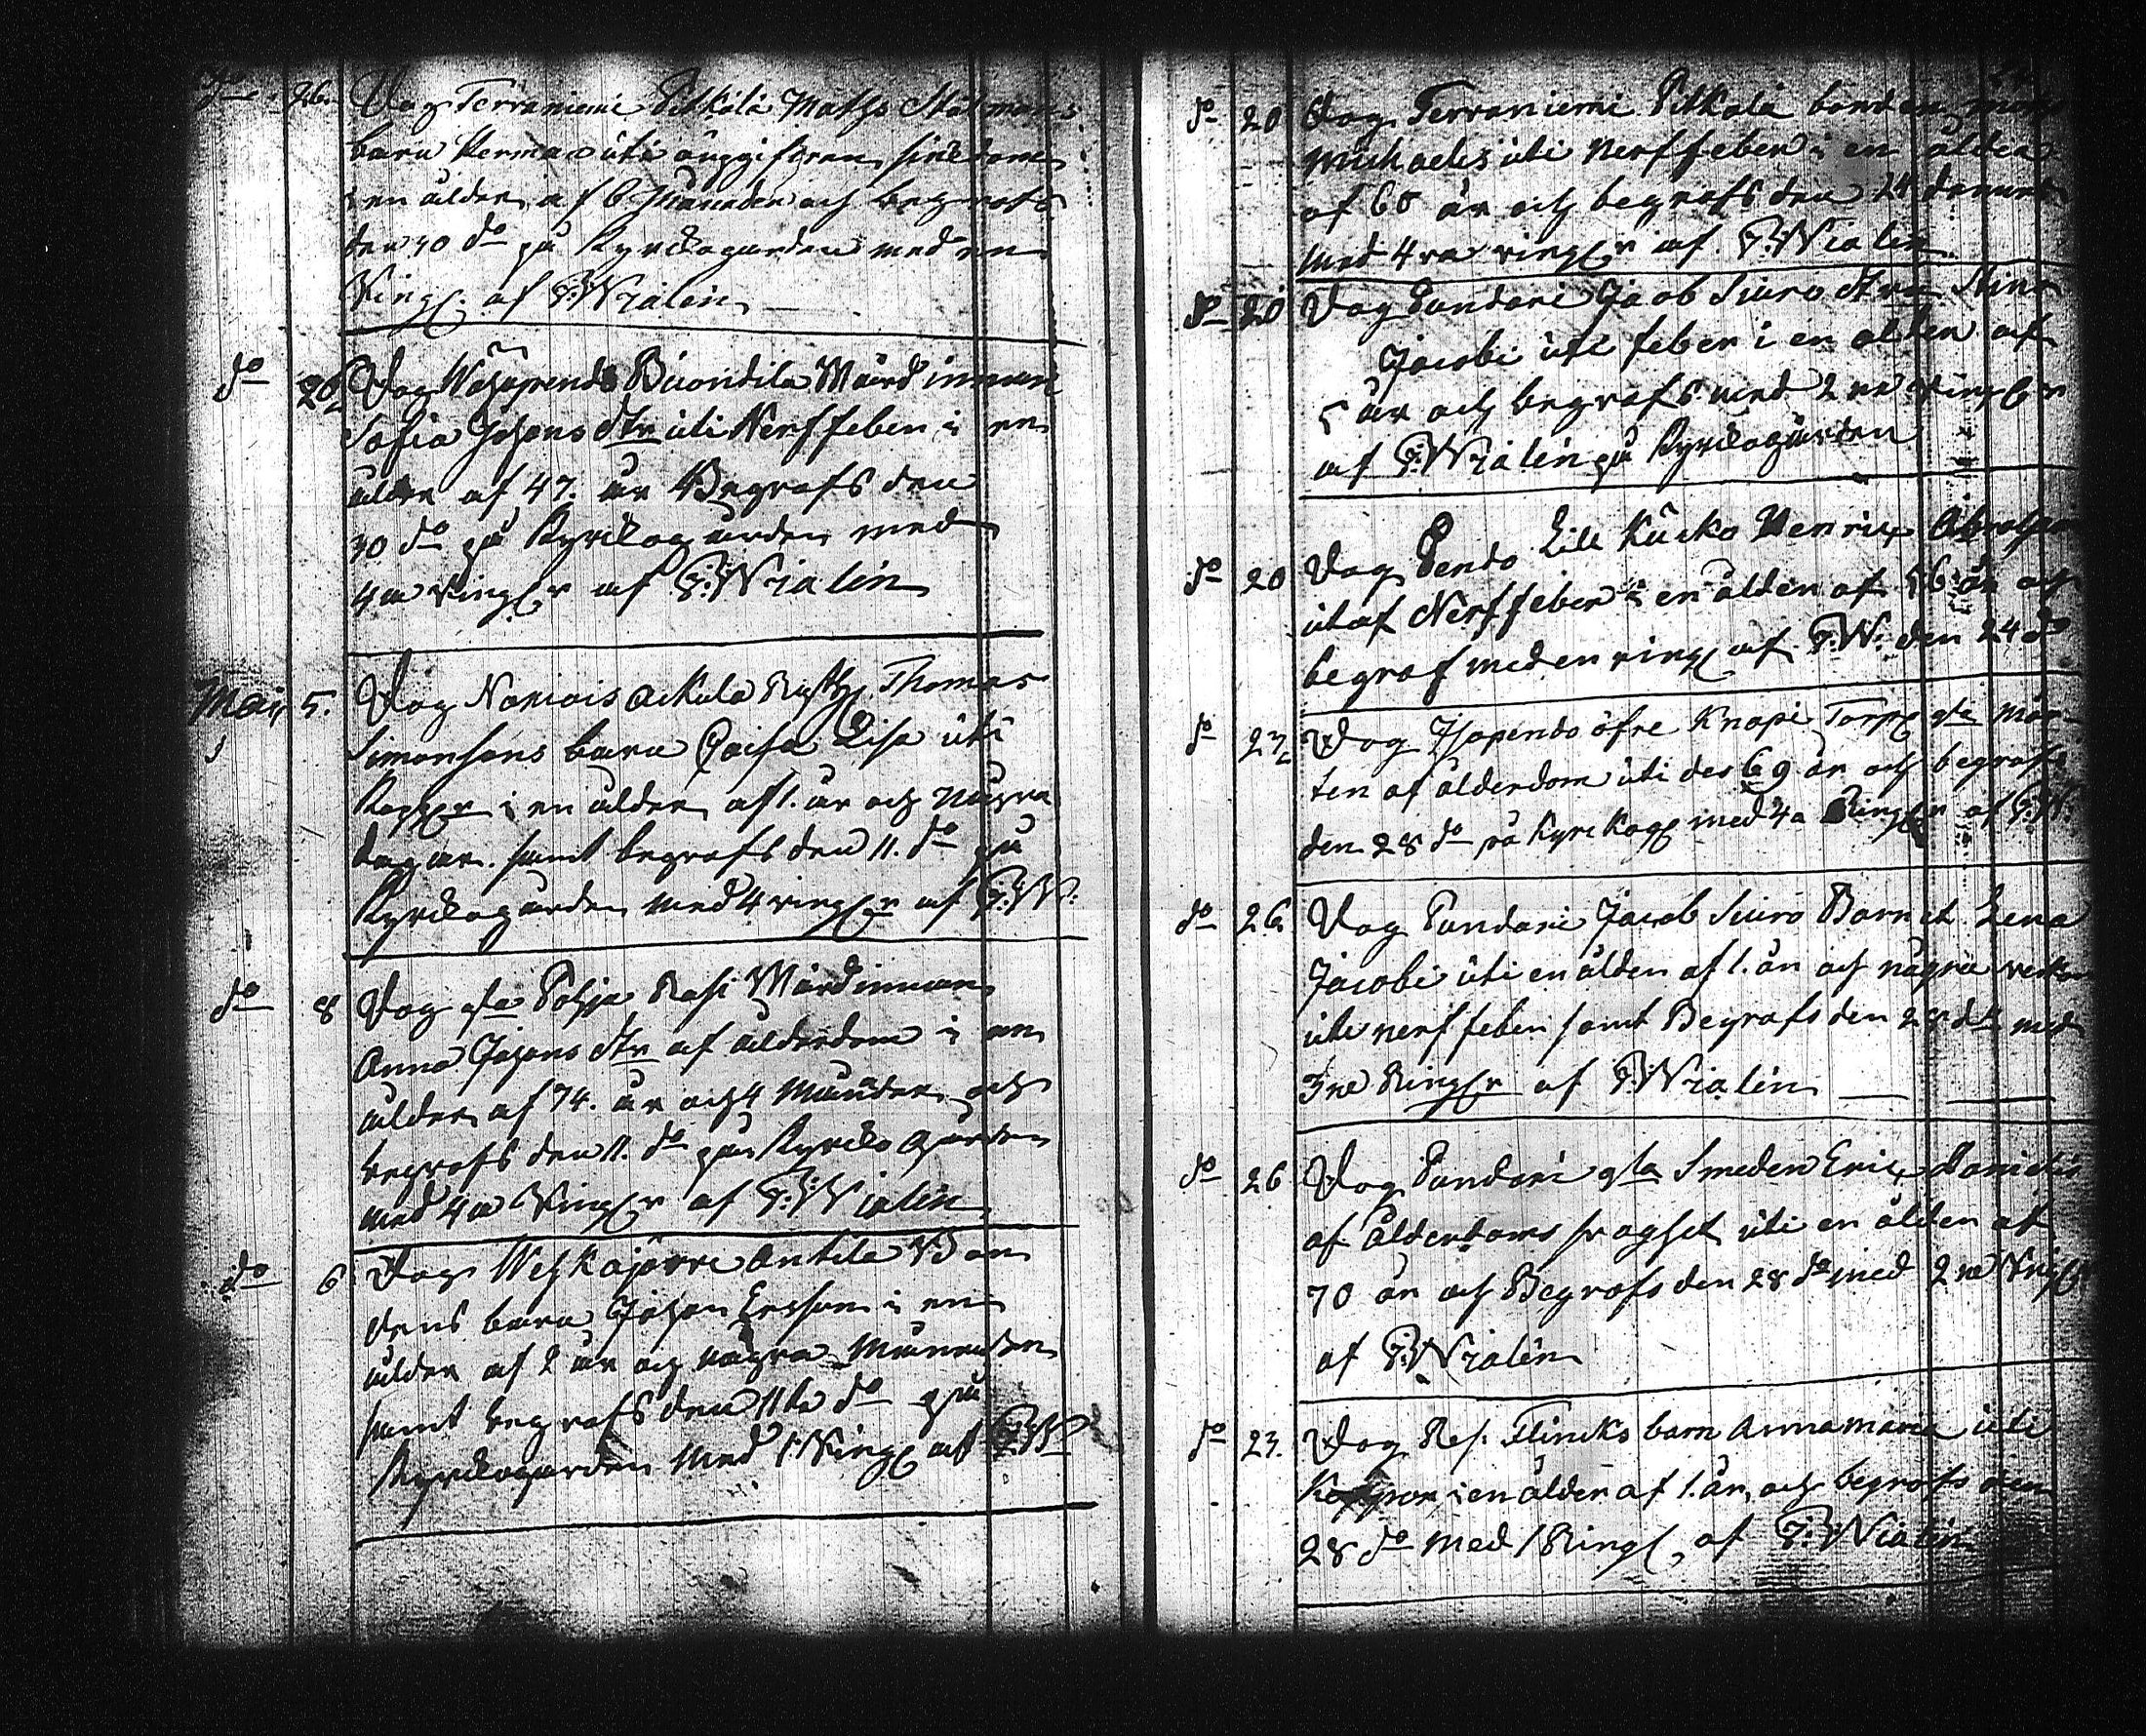 do 26. Dog Terraniemi Pitkälä Maths Stolmans
barn Herman uti ouppgifven sjukdom
i en ålder af 6 Månader och begrofs
den 30 do på Kyrckogården med en
Ring: af G:Wialén
do 26 Dog Biondila Wärdinnan
Sofia Johans dtr uti Nerffeber i en
ålder af 47. år Begrofs den
30 do på Kyrckogården med
4a Ring:r af G:Wialén
Maij 5. Dog Ackula Thomas
Simonsons barn Caisa Lisa uti
Koppor i en ålder af 1. år och några
dagar. samt begrofs den 11. do på
Kyrckogården med 4 ring:r af G:W.
do 8 Dog gla Pohja Rasi Wärdinnan
Anna Johans dtr af ålderdom i en
ålder af 74. år och 4 Månader och
begrofs den 11. do på Kyrcko Gården
med 4a Ring:r af G:Wialén
do 6 Dog Wehkajärvi Antila Bon
dens barn Johan Ersson i en
ålder af 2 år och några Månader
samt begrofs den 11te do på
Kyrckogården med 1 Ring: af G:W
do 20 Dog Terraniemi Pitkälä bonden
Michaelis uti Nerffeber i en ålder
af 60 år och begrofs den 24 derunder
med 4ra ring:r af G:Wialén
do 20 Dog Pundari Jacob Siuro dtra Stina
Jacobi uti feber i en ålder af
5 år och begrofs med 2ne Ring:r
af G:Wialén på Kyrckogården
do 20 Dog Pento Lill Kücko Henrix
utaf Nerffeber i en ålder af 56 år och
begrof med en ring: af G:W. den 24 do
do 27 Dog Isopendo öfre Knapi Torp: gla Mår
ten af ålderdom uti des 69 år och begrofs
den 28 do på Kyrckog: med 4a Ring:r af G:W.
do 26 Dog Pundari Jacob Siuro Barnet Lena
Jacobi uti en ålder af 1. år och några veckor
uti nerffeber samt Begrofs den 28 do med
3ne Ring:r af G:Wialén
do 26 Dog Pundari gla Smeden Eric Danielis
af ålderdoms uti en ålder af
70 år och Begrofs den 28 do med 2ne Ring:r
af G:Wialén
do 23. Dog Ref: Flincks barn Annamaria uti
Koppor i en ålder af 1. år, och begrofs den
28 do med 1 Ring:, af G:Wialén